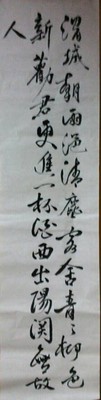 渭城朝雨浥清塵客舍青々柳色
新勸君更進一杯酒西出陽関無故
人